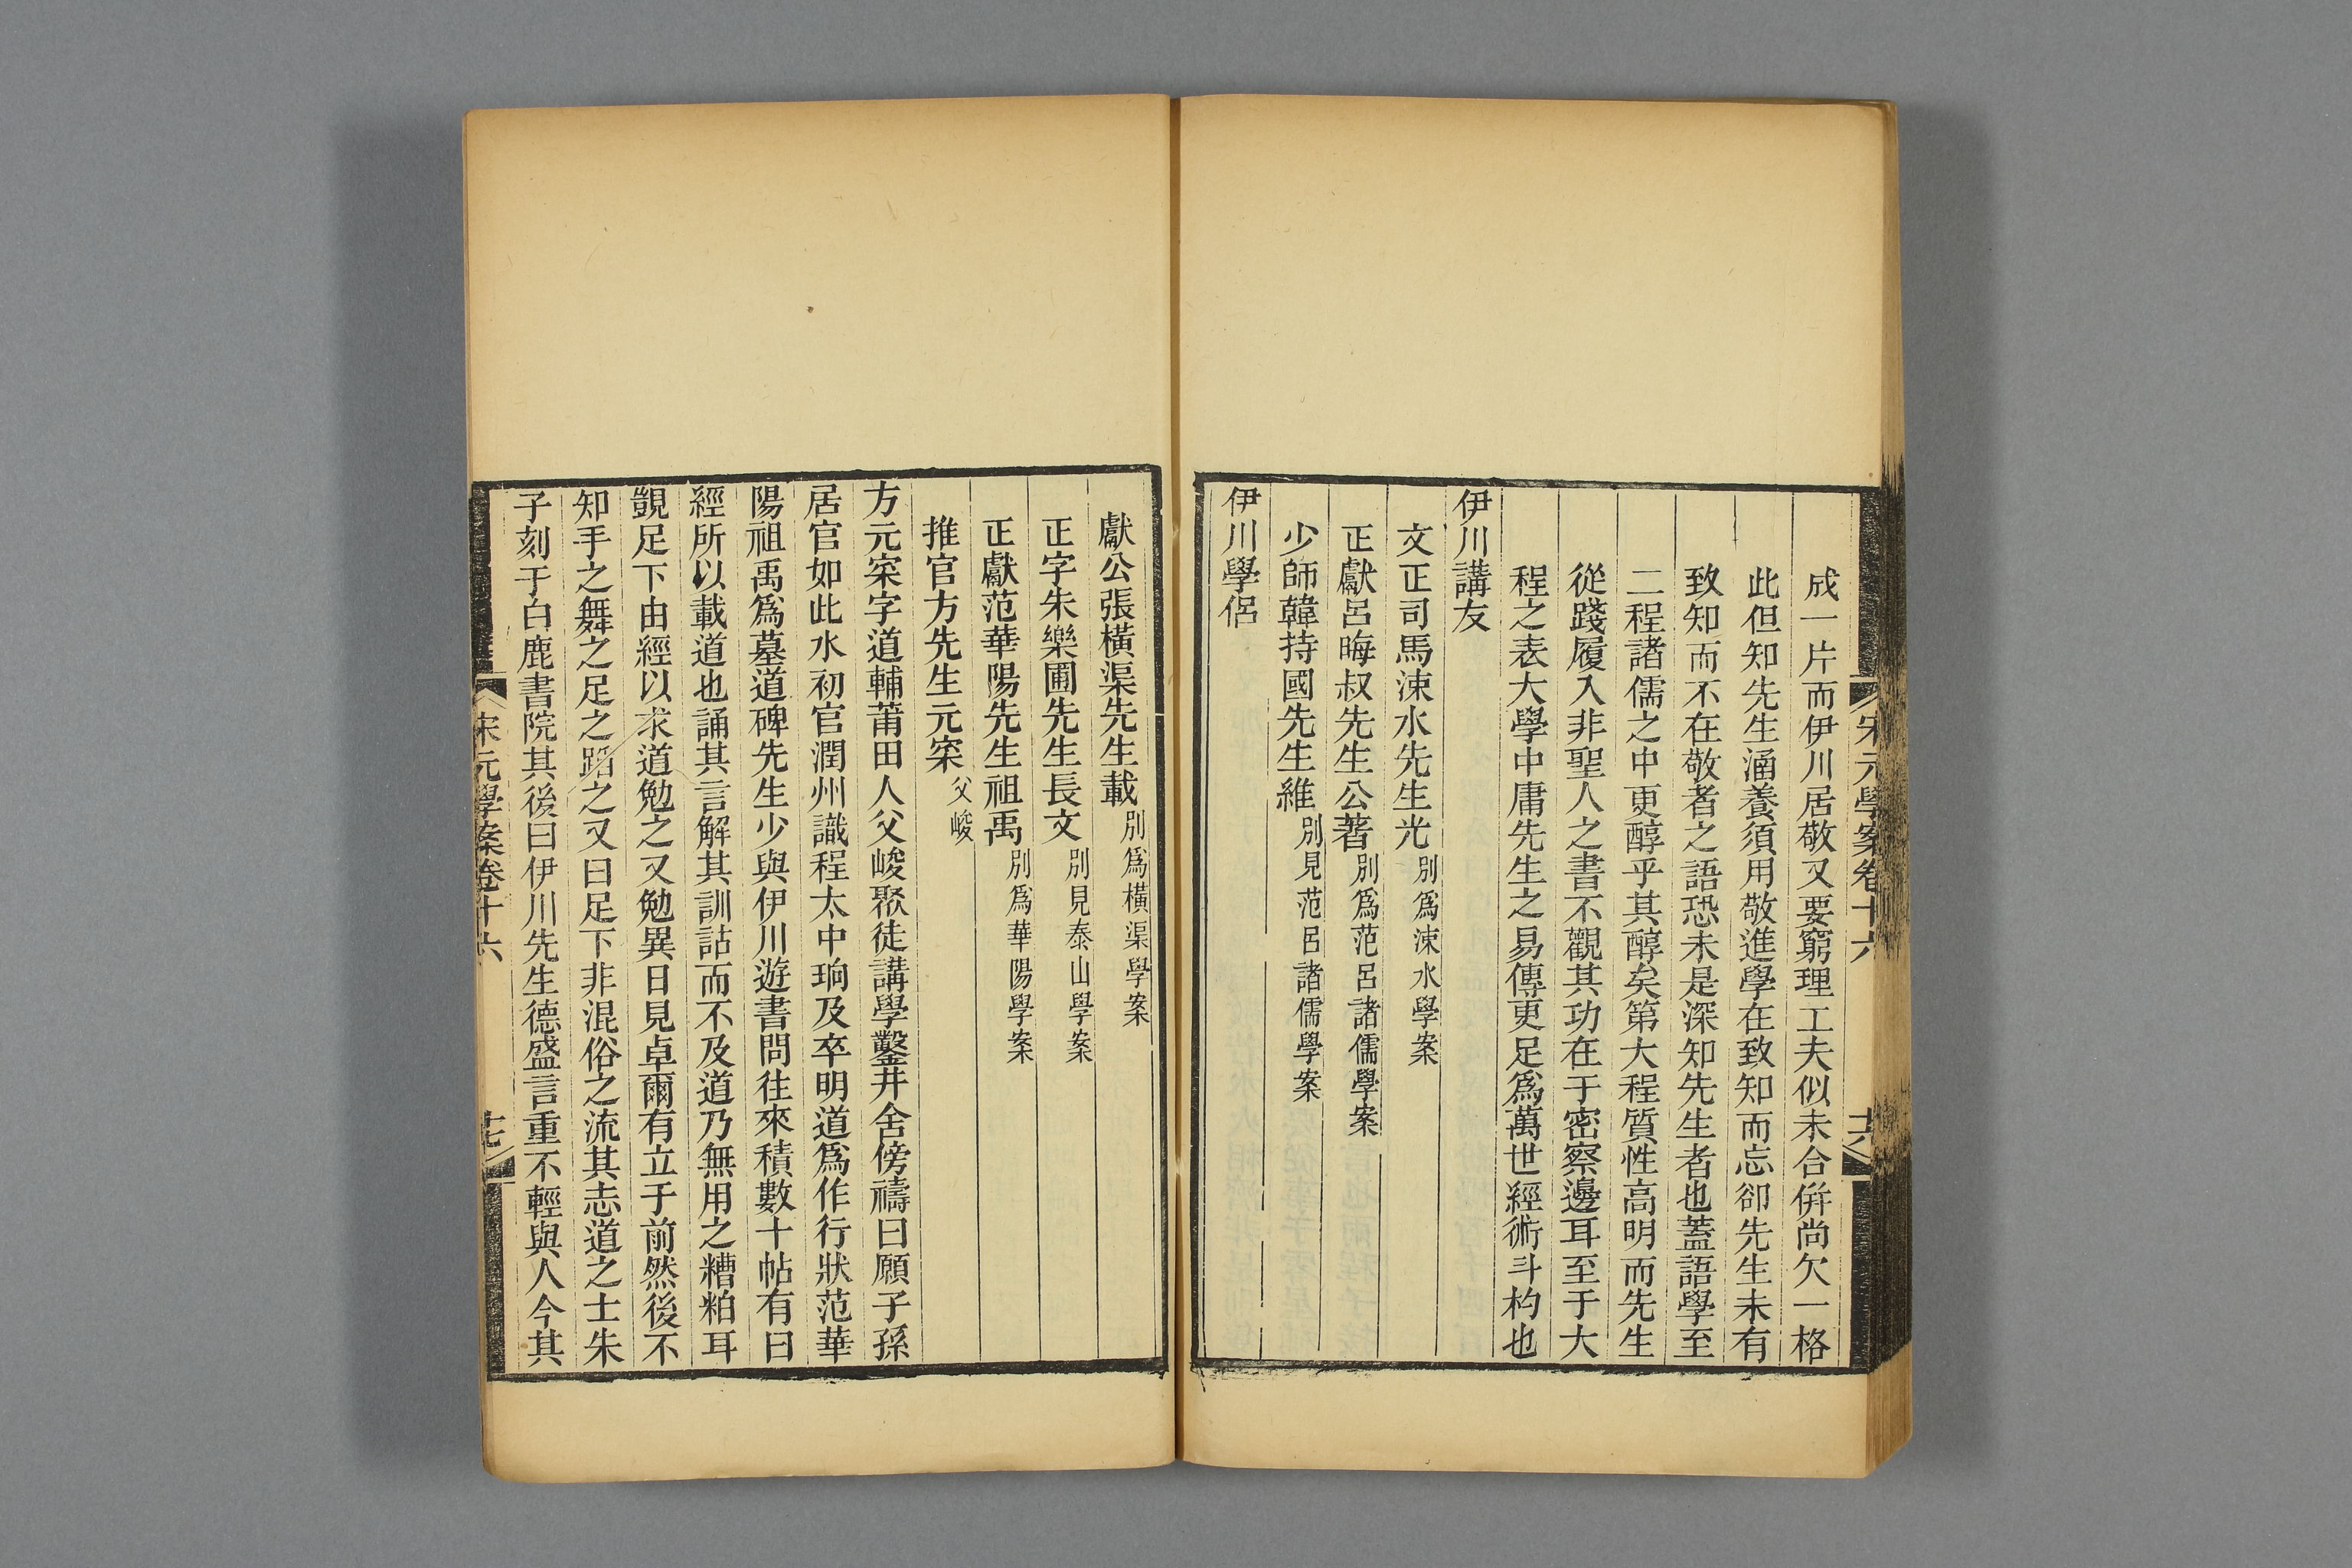 宋元學案卷十六
六
成一片而伊川居敬又要窮理工夫似未合併尚欠一格
此但知先生涵養須用敬進學在致知而忘卻先生未有
致知而不在敬者之語恐未是深知先生者也蓋語學至
二程諸儒之中更醇乎其醇矣第大程質性高明而先生
從踐履入非聖人之書不觀其功在于密察邊耳至于大
程之表大學中庸先生之易傳更足爲萬世經術斗杓也
伊川講友
文正司馬涑水先生光別爲涑水學案
正獻呂晦叔先生公著別爲范呂諸儒學案
少師韓持國先生維別見范呂諸儒學案
伊川學侶
獻公張橫渠先生載別爲橫渠學案
正字朱樂圃先生長文別見泰山學案
正獻范華陽先生祖禹別爲華陽學案
推官方先生元寀父峻
方元寀字道輔莆田人父峻聚徒講學鑿井舍傍禱曰願子孫
居官如此水初官潤州識程太中珦及卒明道爲作行狀范華
陽祖禹爲墓道碑先生少與伊川遊書問往來積數十帖有曰
經所以載道也誦其言解其訓詁而不及道乃無用之糟粕耳
覬足下由經以求道勉之又勉異日見卓爾有立于前然後不
知手之舞之足之蹈之又曰足下非混俗之流其志道之士朱
子刻于白鹿書院其後曰伊川先生德盛言重不輕與人今其
宋元學案卷十六
七